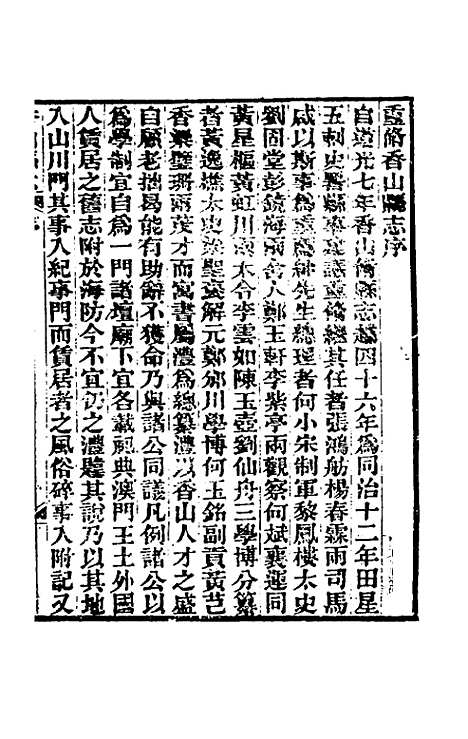 重脩香山縣志序
自道光七年香山脩縣志越四十六年爲同治十二年田星
五刺史署縣事建議重脩總其任者張鴻舫楊春霖兩司馬
咸以斯事爲重爲紳先生總理者何小宋制軍黎鳳樓太史
劉固堂彭鏡海兩舍人鄭玉軒李紫亭兩觀察何斌襄選同
黃星樞黃虹川兩大令李雲如陳玉壺劉仙舟三學博分纂
者黃逸樵太史梁聖襃解元鄭 川學博何玉銘副貢黃芑
香梁璧珊兩茂才而寓書屬澧爲總纂澧以香山人才之盛
自顧老拙曷能有助辭不獲命乃與諸公同議凡例諸公以
爲學制宜自爲一門諸壇廟下宜各載祀典澳門王土外國
人賃居之舊志附於海防今不宜仍之澧韙其說乃以其地
入山川門其事入紀事門而賃居者之風俗碎事入附記又